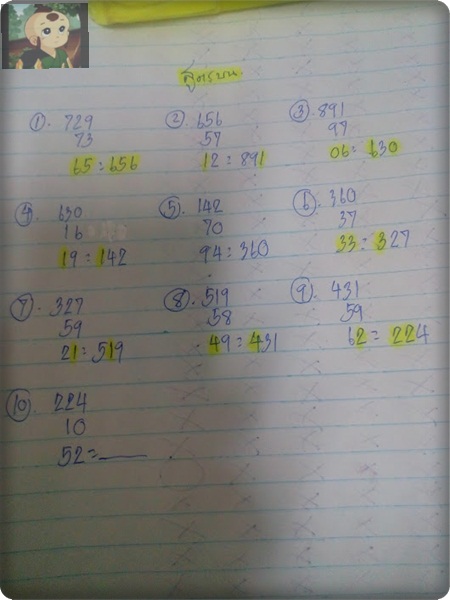 สูตรบน
① 729
73
65 = 656
② 656
57
12 = 891
③ 891
97
06 = 630
④ 630
16
19 = 142
⑤ 142
70
94 = 360
⑥ 360
37
33 = 327
⑦ 327
59
21 = 519
⑧ 519
58
49 = 431
⑨ 431
59
62 = 224
⑩ 224
10
52 =